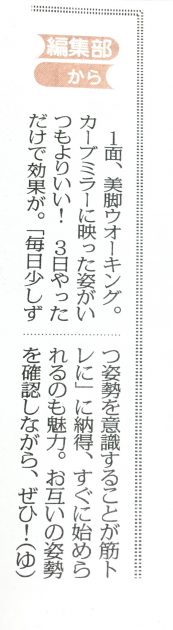 編集部
から
１面、美脚ウオーキング。
カーブミラーに映った姿がい
つもよりいい！　３日やった
だけで効果が。「毎日少しず
つ姿勢を意識することが筋ト
レに」に納得、すぐに始めら
れるのも魅力。お互いの姿勢
を確認しながら、ぜひ！（ゆ）